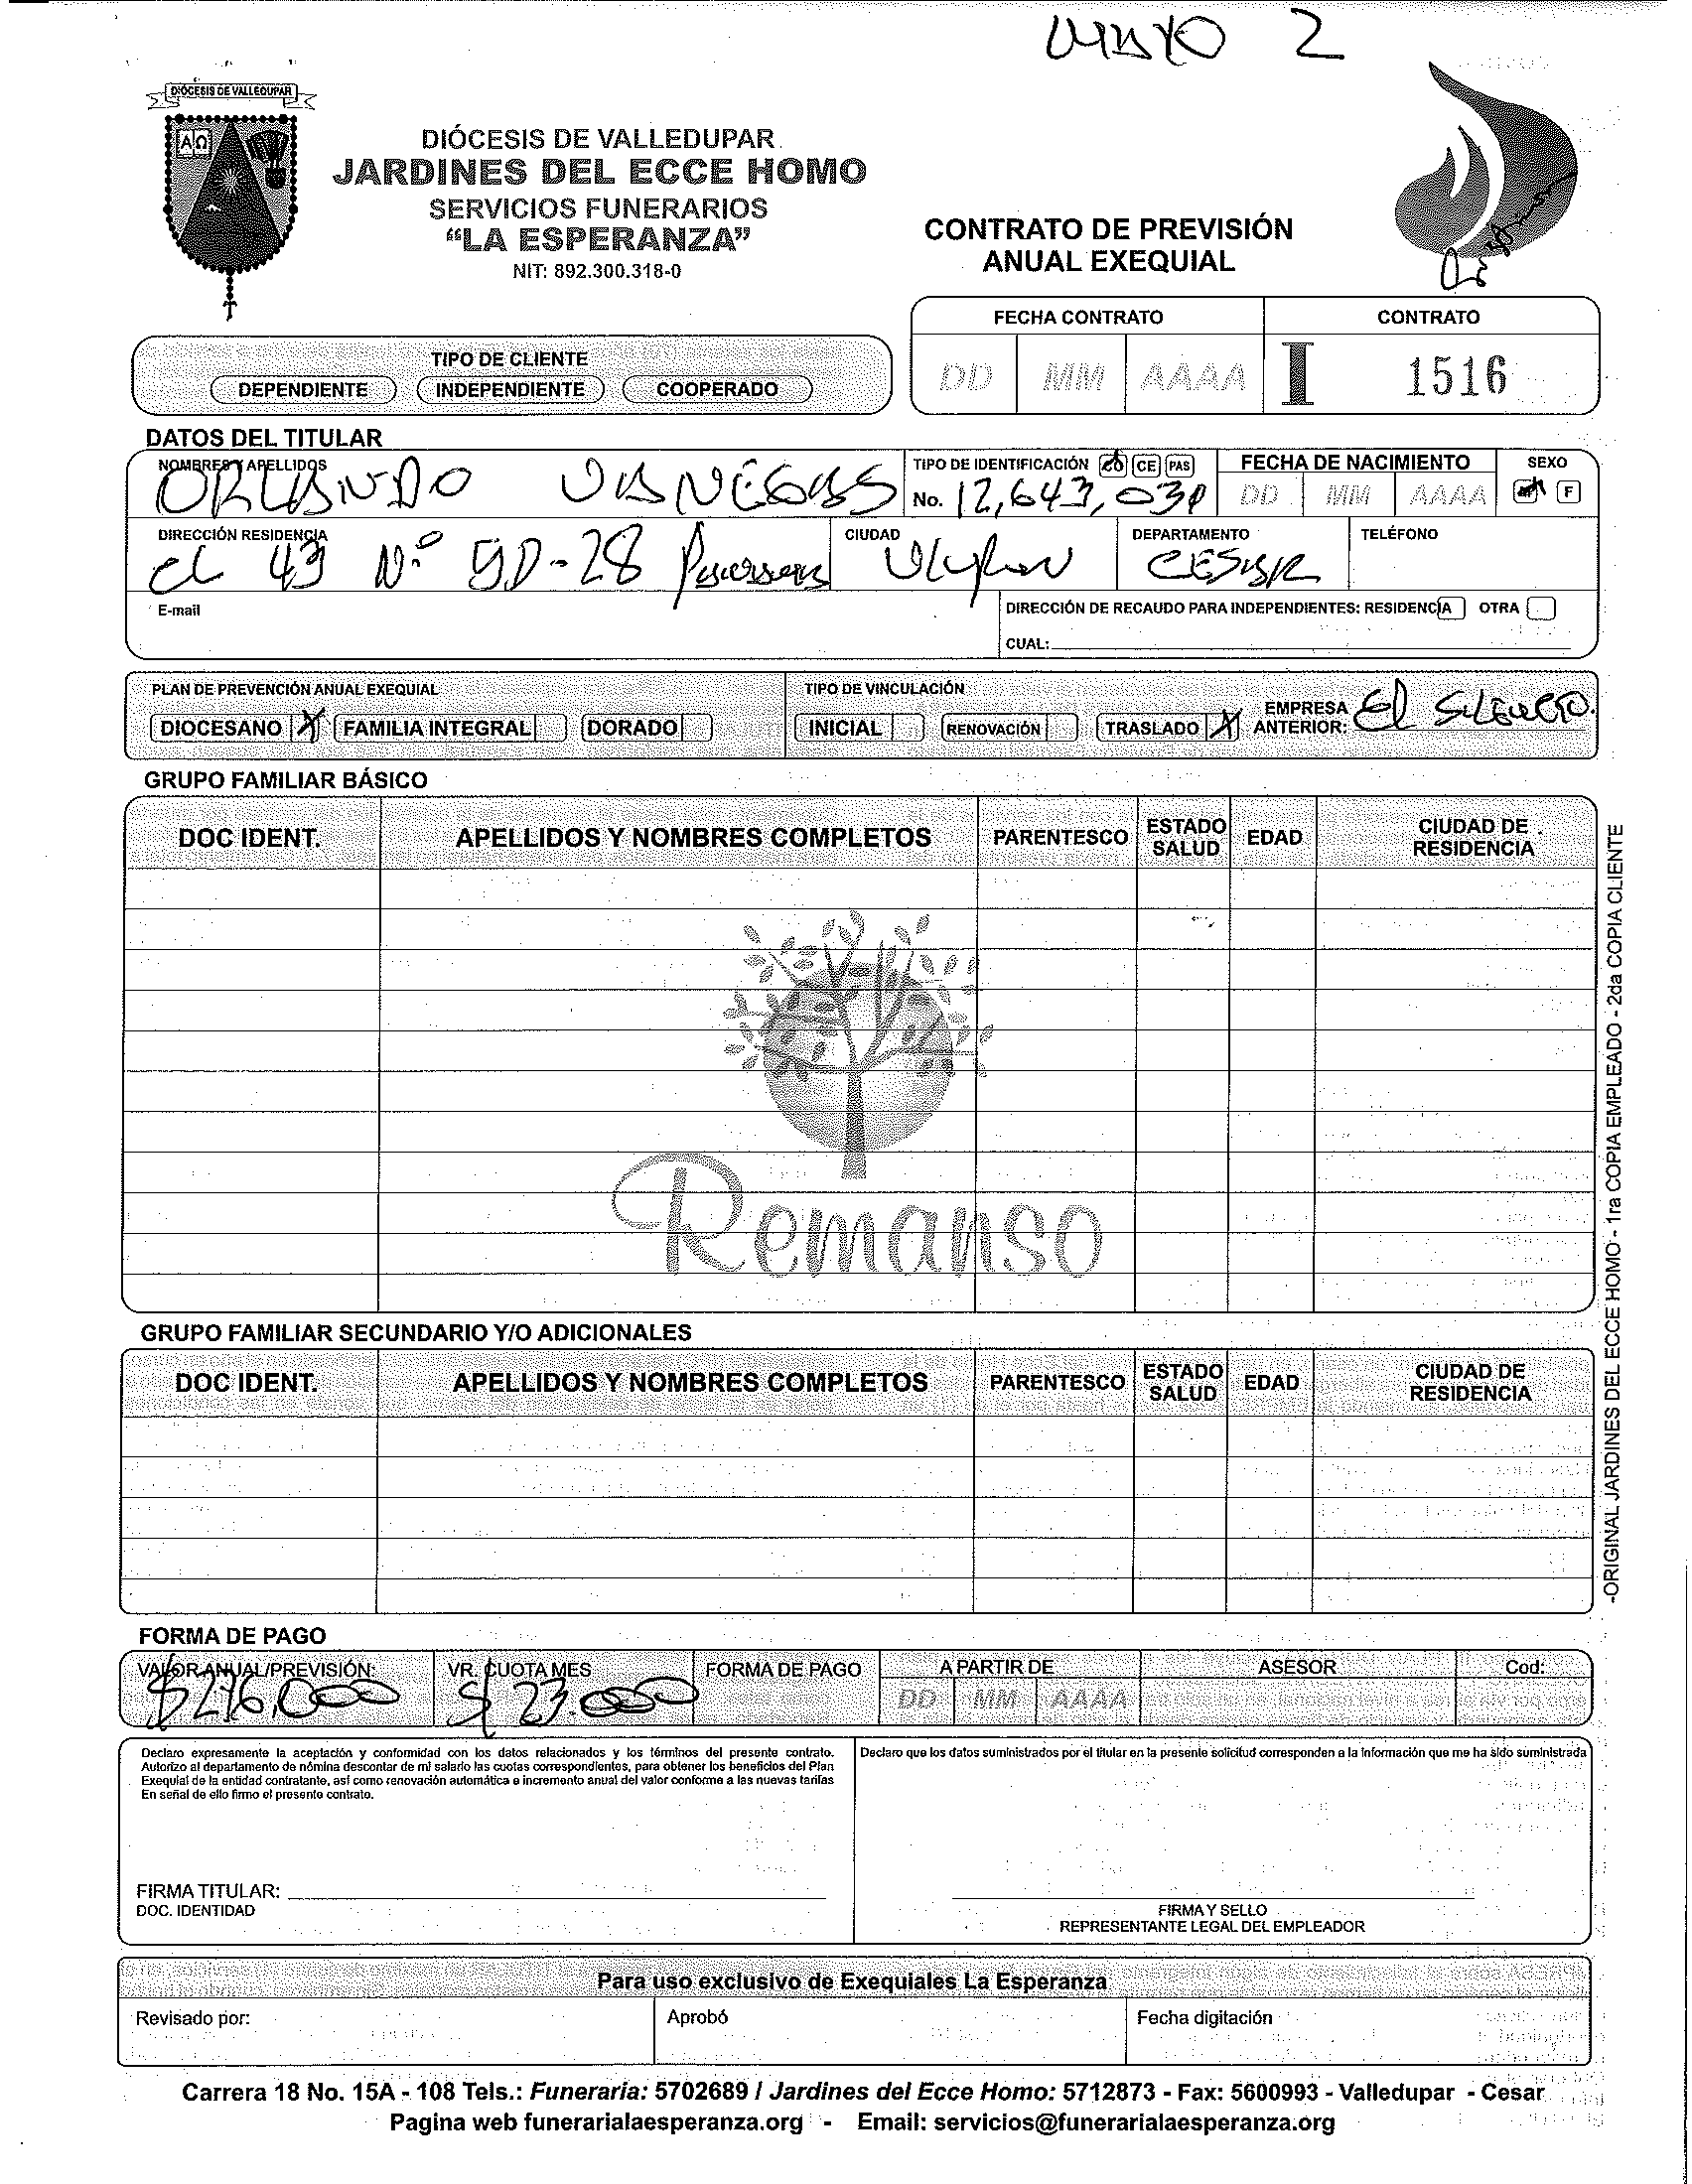 MAYO 2
DIÓCESIS DE VALLEDUPAR
ΑΩ
DIÓCESIS DE VALLEDUPAR
JARDINES DEL ECCE HOMO
SERVICIOS FUNERARIOS
"LA ESPERANZA"
NIT: 892.300.318-0
CONTRATO DE PREVISIÓN
ANUAL EXEQUIAL
FECHA CONTRATO CONTRATO
DD MM AAAA I 1516
TIPO DE CLIENTE
DEPENDIENTE INDEPENDIENTE COOPERADO
DATOS DEL TITULAR
NOMBRES Y APELLIDOS TIPO DE IDENTIFICACIÓN CE PAS FECHA DE NACIMIENTO SEXO
ORLANDO VANEGAS No. 12,643,030 DD MM AAAA F
DIRECCIÓN RESIDENCIA CIUDAD DEPARTAMENTO TELÉFONO
CL 43 Nº 5D-28 CESAR
E-mail DIRECCIÓN DE RECAUDO PARA INDEPENDIENTES: RESIDENCIA OTRA
CUAL:
PLAN DE PREVENCIÓN ANUAL EXEQUIAL TIPO DE VINCULACIÓN
DIOCESANO X FAMILIA INTEGRAL DORADO INICIAL RENOVACIÓN TRASLADO X EMPRESA ANTERIOR: El SILENCIO.
GRUPO FAMILIAR BÁSICO
DOC IDENT. APELLIDOS Y NOMBRES COMPLETOS PARENTESCO ESTADO SALUD EDAD CIUDAD DE RESIDENCIA
Remanso
GRUPO FAMILIAR SECUNDARIO Y/O ADICIONALES
DOC IDENT. APELLIDOS Y NOMBRES COMPLETOS PARENTESCO ESTADO SALUD EDAD CIUDAD DE RESIDENCIA
-ORIGINAL JARDINES DEL ECCE HOMO - 1ra COPIA EMPLEADO - 2da COPIA CLIENTE
FORMA DE PAGO
VALOR ANUAL/PREVISIÓN: VR. CUOTA MES FORMA DE PAGO A PARTIR DE ASESOR Cod:
$276.000 $23.000 DD MM AAAA
Declaro expresamente la aceptación y conformidad con los datos relacionados y los términos del presente contrato.
Autorizo al departamento de nómina descontar de mi salario las cuotas correspondientes, para obtener los beneficios del Plan
Exequial de la entidad contratante, así como renovación automática e incremento anual del valor conforme a las nuevas tarifas
En señal de ello firmo el presente contrato.
Declaro que los datos suministrados por el titular en la presente solicitud corresponden a la información que me ha sido suministrada
FIRMA TITULAR:
DOC. IDENTIDAD
FIRMA Y SELLO
REPRESENTANTE LEGAL DEL EMPLEADOR
Para uso exclusivo de Exequiales La Esperanza
Revisado por: Aprobó Fecha digitación
Carrera 18 No. 15A - 108 Tels.: Funeraria: 5702689 / Jardines del Ecce Homo: 5712873 - Fax: 5600993 - Valledupar - Cesar
Pagina web funerarialaesperanza.org - Email: servicios@funerarialaesperanza.org